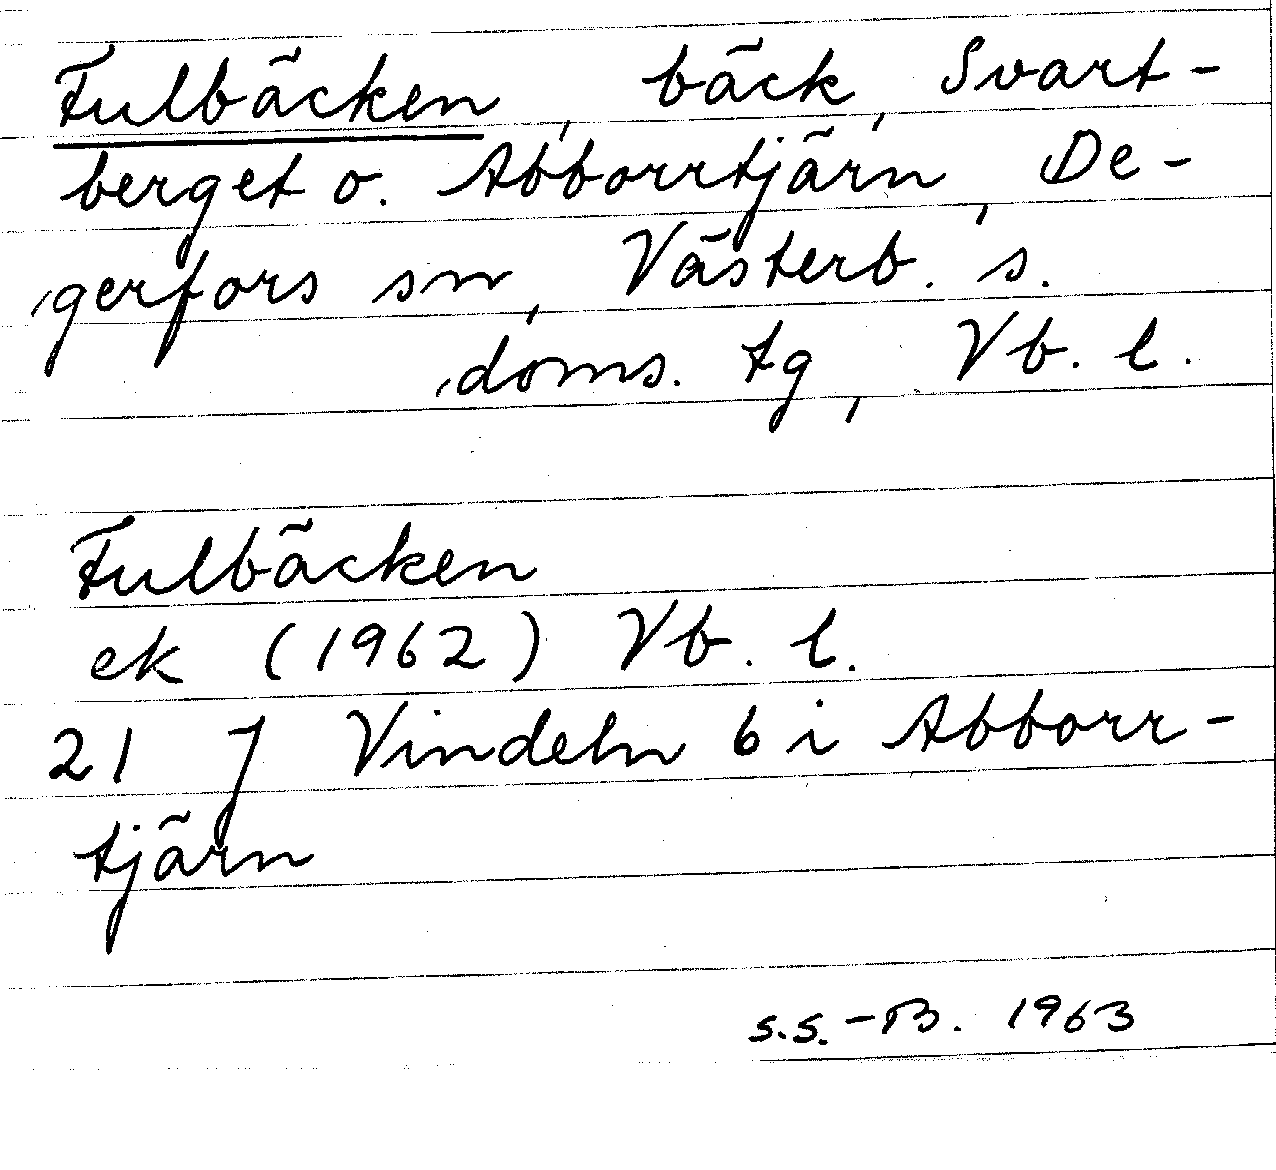 Fulbäcken, bäck, Svart-
berget o. Abborrtjärn, De-
gerfors sn, Västerb. s.
doms. tg, Vb. l.
Fulbäcken
ek (1962) Vb. l.
21 J Vindeln 6 i Abborr-
tjärn
S.S.-B. 1963